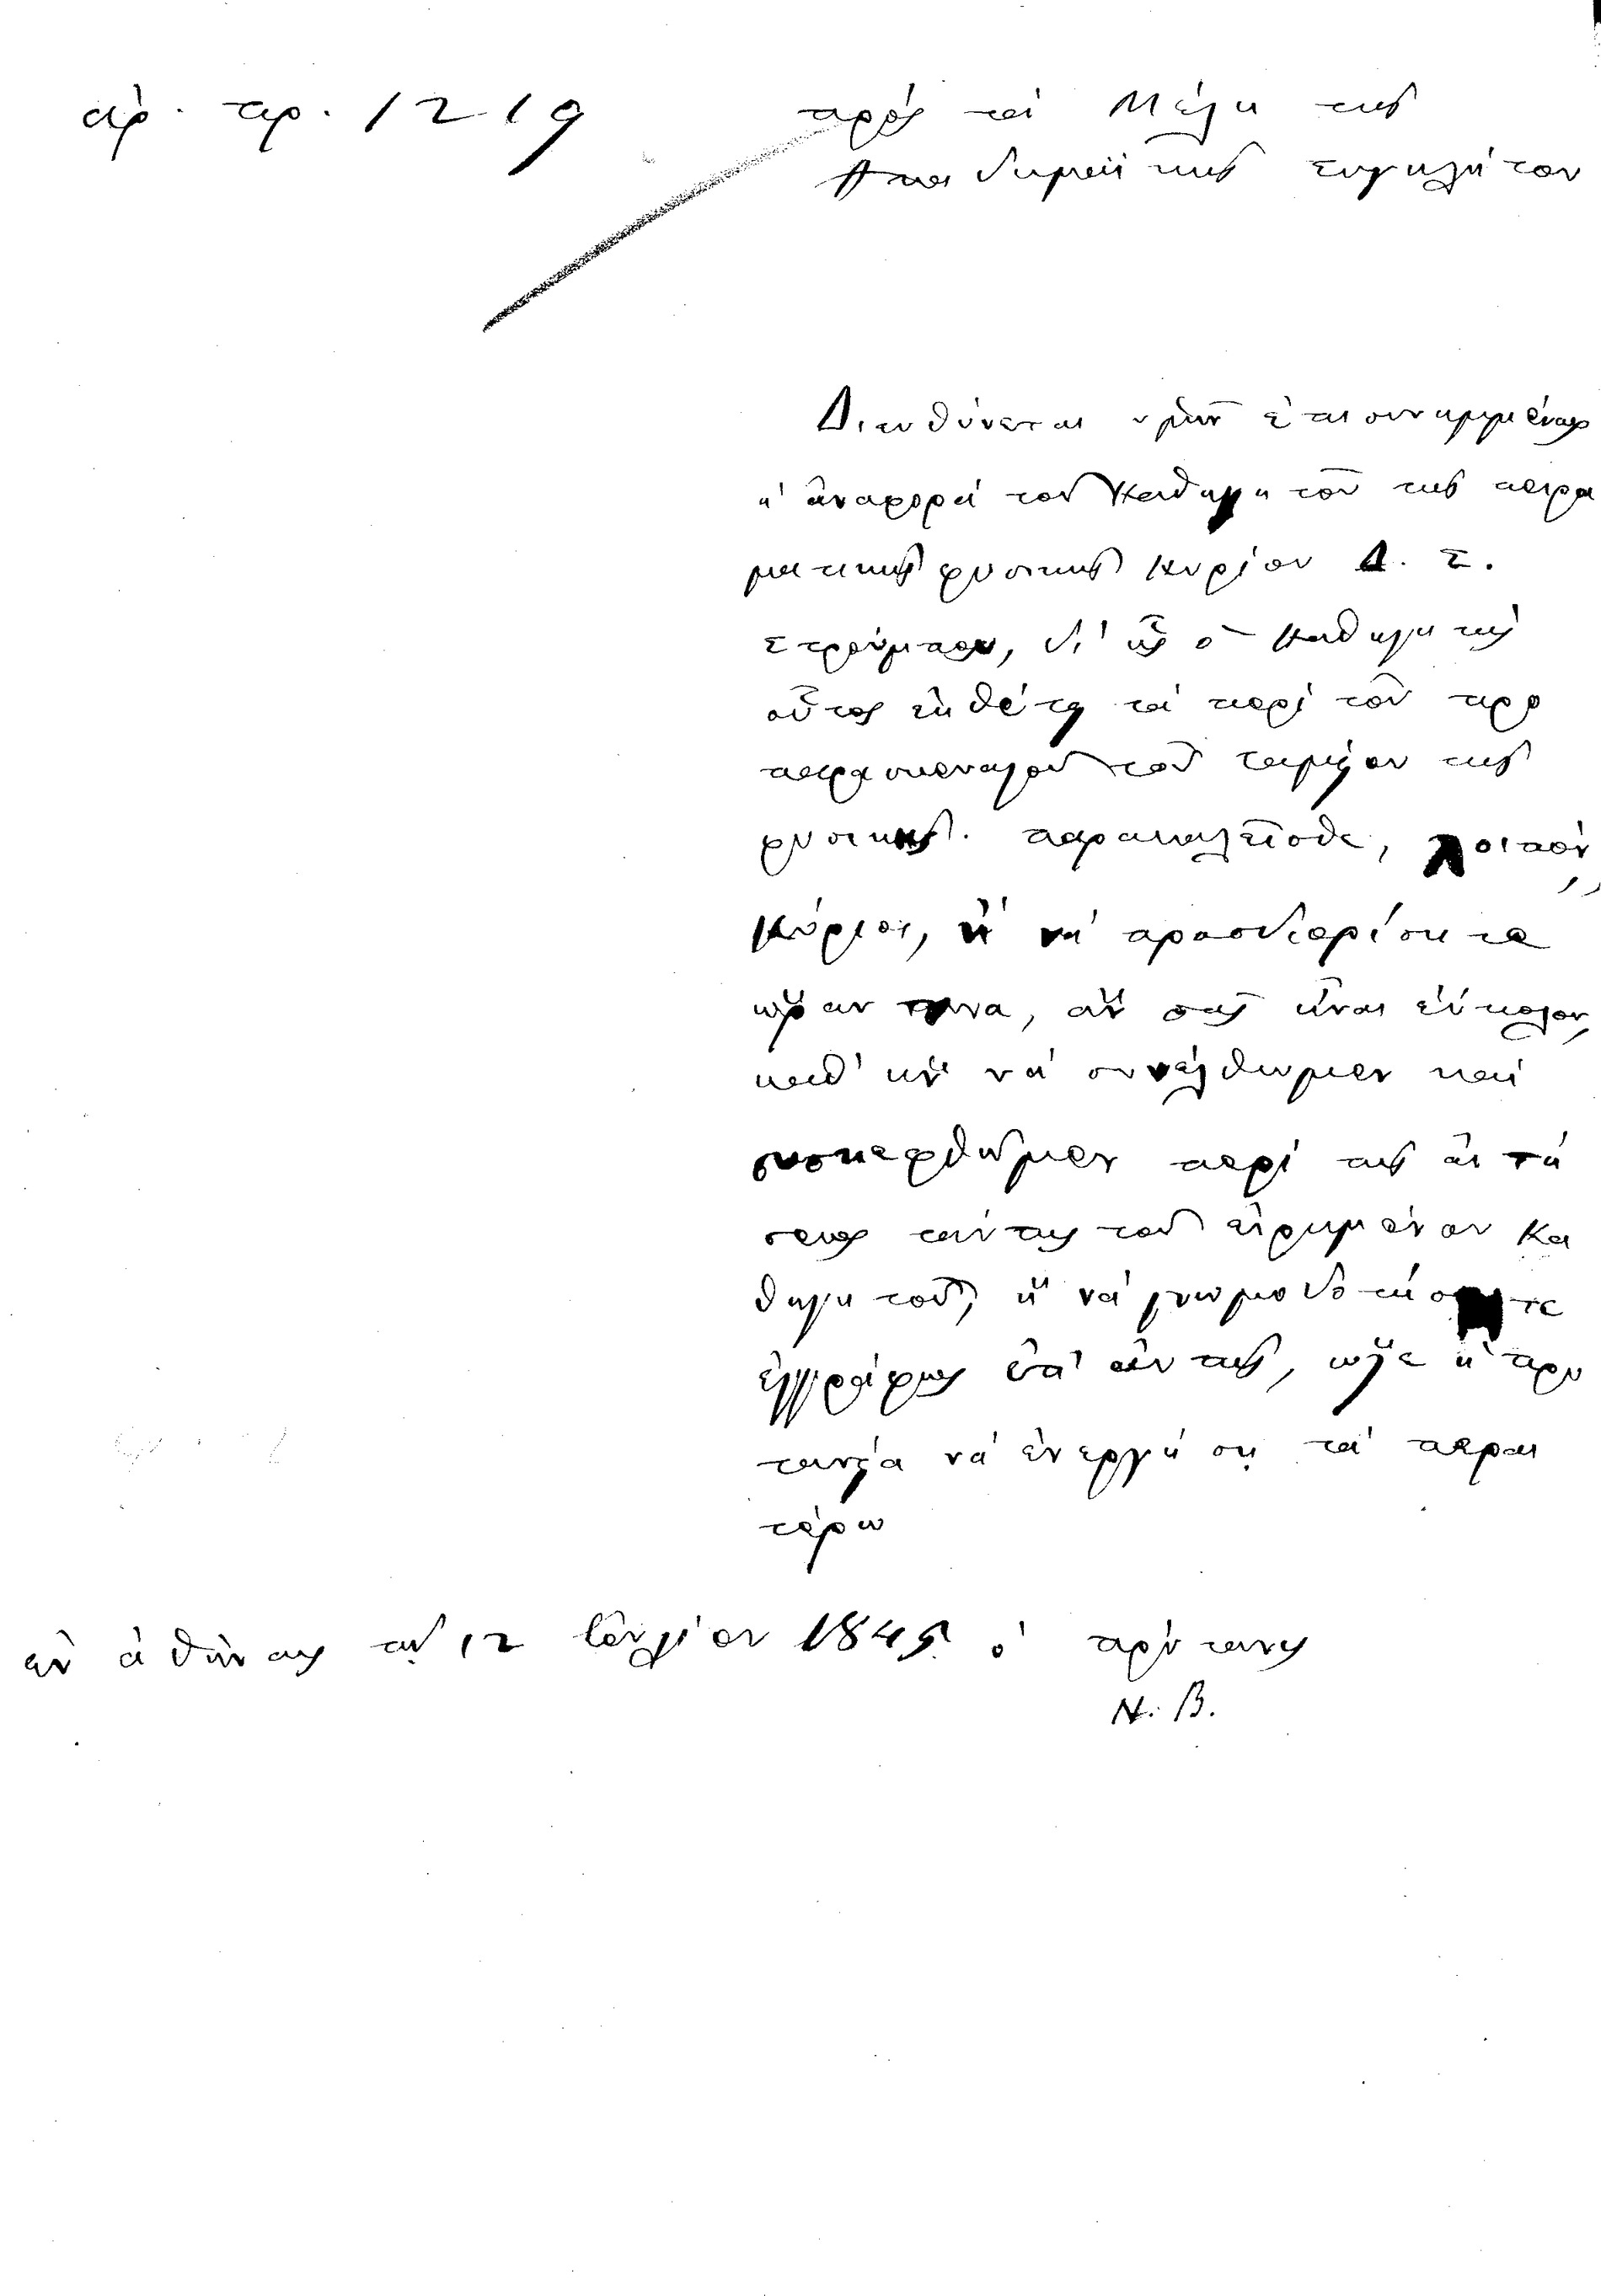 ἀρ. πρ. 1219
πρός τά Μέλη τῆς
Ἀκαδημαϊκῆς Συγκλήτου
Διευθύνεται ὑμῖν ἐπισυνημμένως
ἡ ἀναφορά τοῦ Καθηγητοῦ τῆς πειρα
ματικῆς φυσικῆς Κυρίου Δ. Σ.
Στρούμπου, δι' ἧς ὁ Καθηγητής
οὗτος ἐκθέτει τά περί τοῦ
τοῦ ταμείου τῆς
φυσικῆς. παρακαλεῖσθε, λοιπόν,
Κύριοι, ἤ νά προσδιορίσητε
ὥραν τινα, ἄν σᾶς ἦναι εὔκολον,
καθ' ἥν νά συνέλθωμεν καί
συσκεφθῶμεν περί τῆς αἰτή
σεως ταύτης τοῦ εἰρημένου Κα
θηγητοῦ, ἤ νά γνωμοδοτήσητε
ἐγγράφως ἐπ' αὐτῆς, ὥστε ἡ πρυ
τανεία νά ἐνεργήσῃ τά περαι
τέρω
ἐν Ἀθήναις τῇ 12 Ἰουλίου 1845. ὁ πρύτανις
Ν. Β.